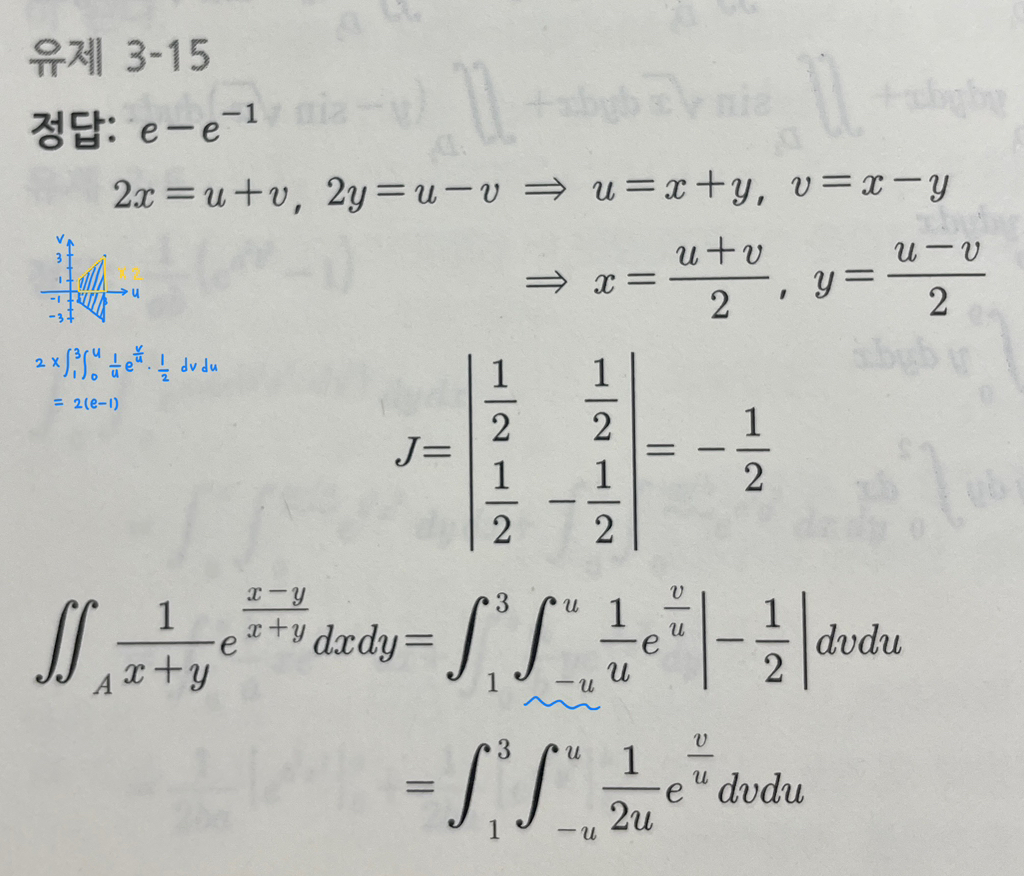 유제 3-15
정답: e-e^{-1}
2x=u+v, 2y=u-v ⇒ u=x+y, v=x-y
⇒ x=\frac{u+v}{2}, y=\frac{u-v}{2}
v 3 1 -1 -3 u ×2
2×∫_1^3∫_0^u \frac{1}{u}e^{\frac{v}{u}}·\frac{1}{2} dvdu
= 2(e-1)
J=\begin{vmatrix}\frac{1}{2} & \frac{1}{2} \\ \frac{1}{2} & -\frac{1}{2}\end{vmatrix}=-\frac{1}{2}
∬_A \frac{1}{x+y}e^{\frac{x-y}{x+y}}dxdy=∫_1^3∫_{-u}^u \frac{1}{u}e^{\frac{v}{u}}|-\frac{1}{2}|dvdu
=∫_1^3∫_{-u}^u \frac{1}{2u}e^{\frac{v}{u}}dvdu